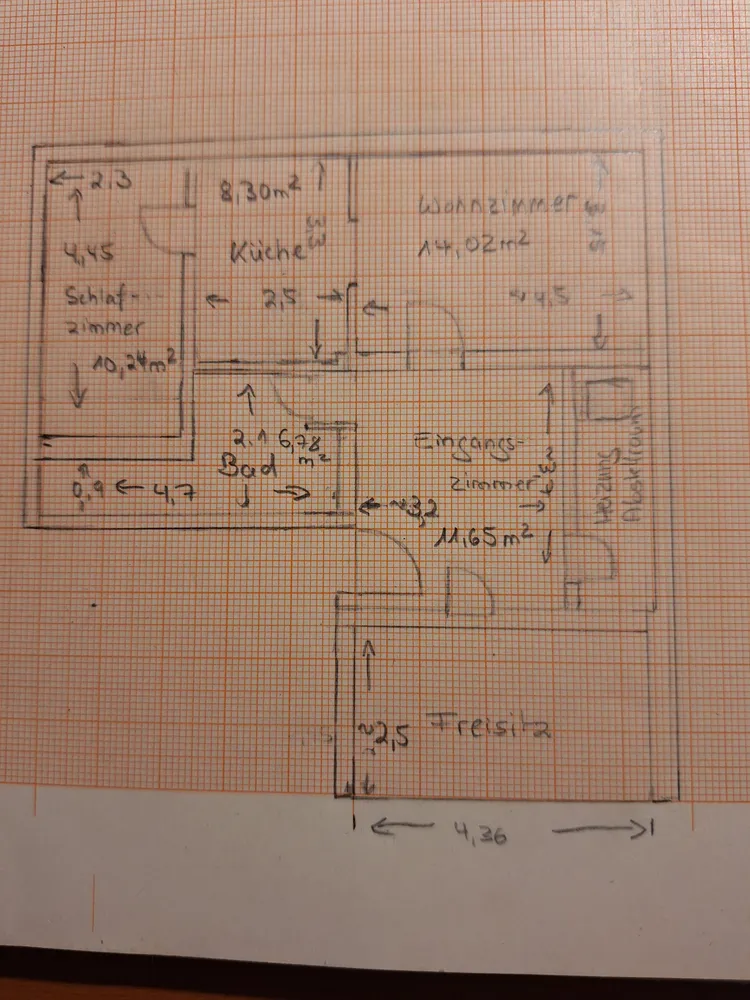 2,3
8,30m²
Wohnzimmer
3,3
4,45
Küche
14,02m²
Schlaf-
zimmer
2,5
4,5
10,24m²
2.1
6,78
m²
Bad
Eingangs-
zimmer
0,9
4,7
~3,2
11,65m²
Heizung
Abstellraum
~2,5
Freisitz
4,36